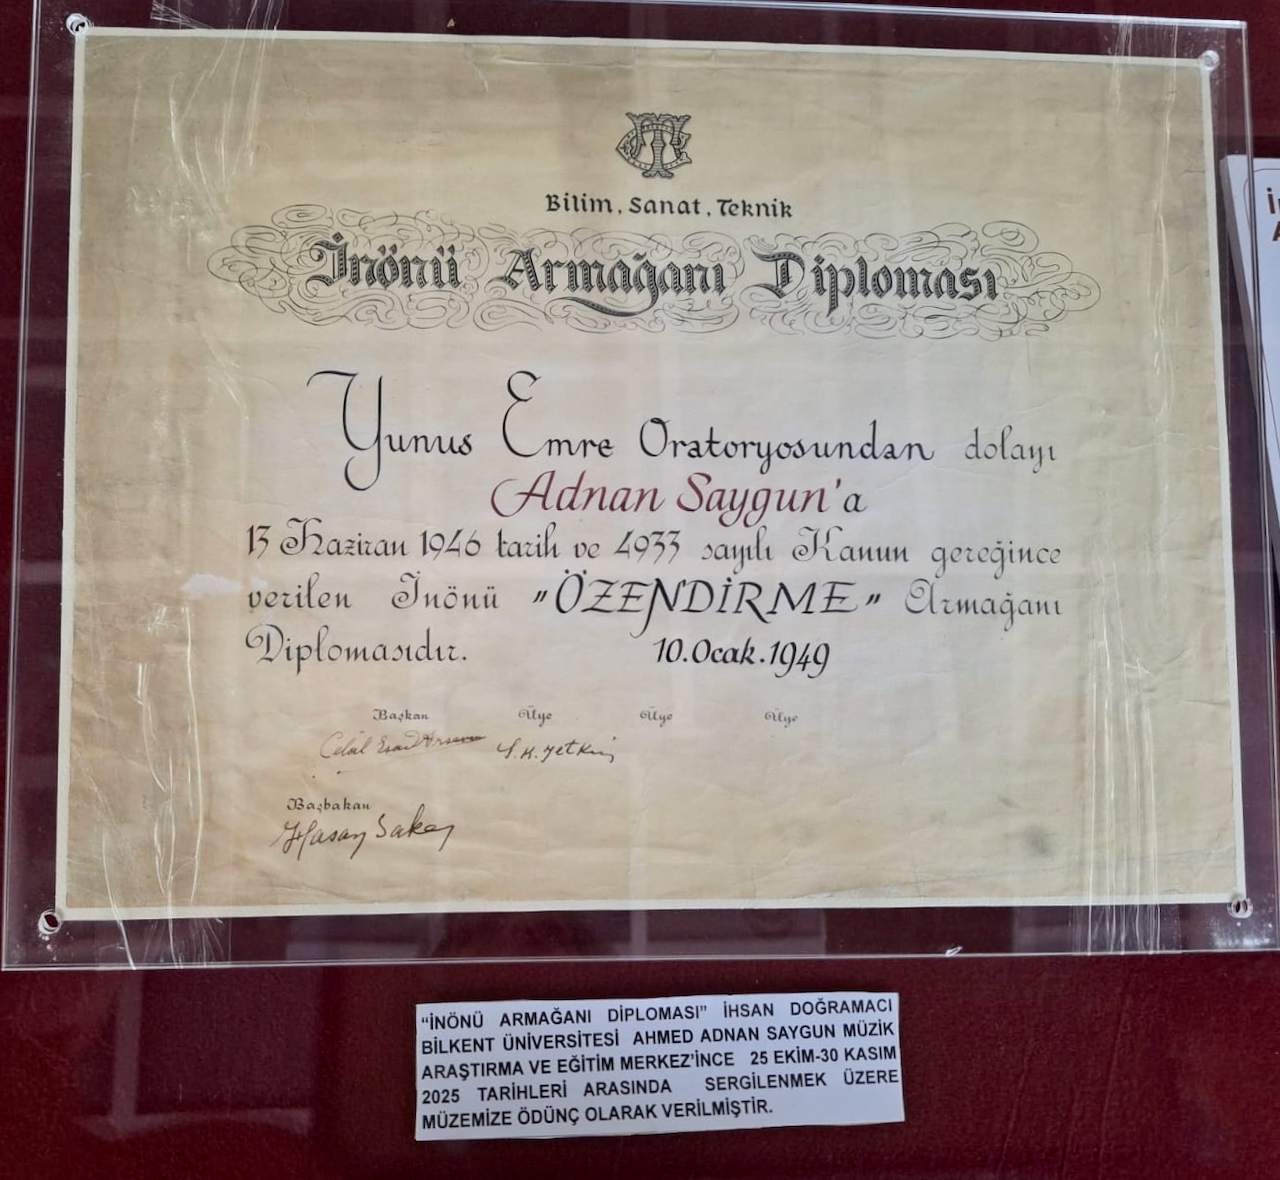 Bilim, Sanat, Teknik
İnönü Armağanı Diploması
Yunus Emre Oratoryosundan dolayı
Adnan Saygun'a
13 Haziran 1946 tarih ve 4933 sayılı Kanun gereğince
verilen İnönü "ÖZENDİRME" Armağanı
Diplomasıdır. 10.Ocak.1949
Başkan Üye Üye Üye
Celâl Esad Arseven S.K.Yetkin
Başbakan
Hasan Saka
"İNÖNÜ ARMAĞANI DİPLOMASI" İHSAN DOĞRAMACI
BİLKENT ÜNİVERSİTESİ AHMED ADNAN SAYGUN MÜZİK
ARAŞTIRMA VE EĞİTİM MERKEZ'İNCE 25 EKİM-30 KASIM
2025 TARİHLERİ ARASINDA SERGİLENMEK ÜZERE
MÜZEMİZE ÖDÜNÇ OLARAK VERİLMİŞTİR.